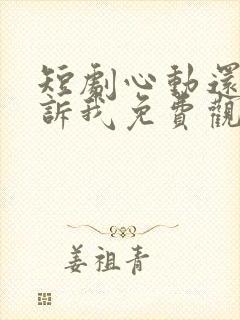 短劇心動還
訴我免費觀
姜祖青